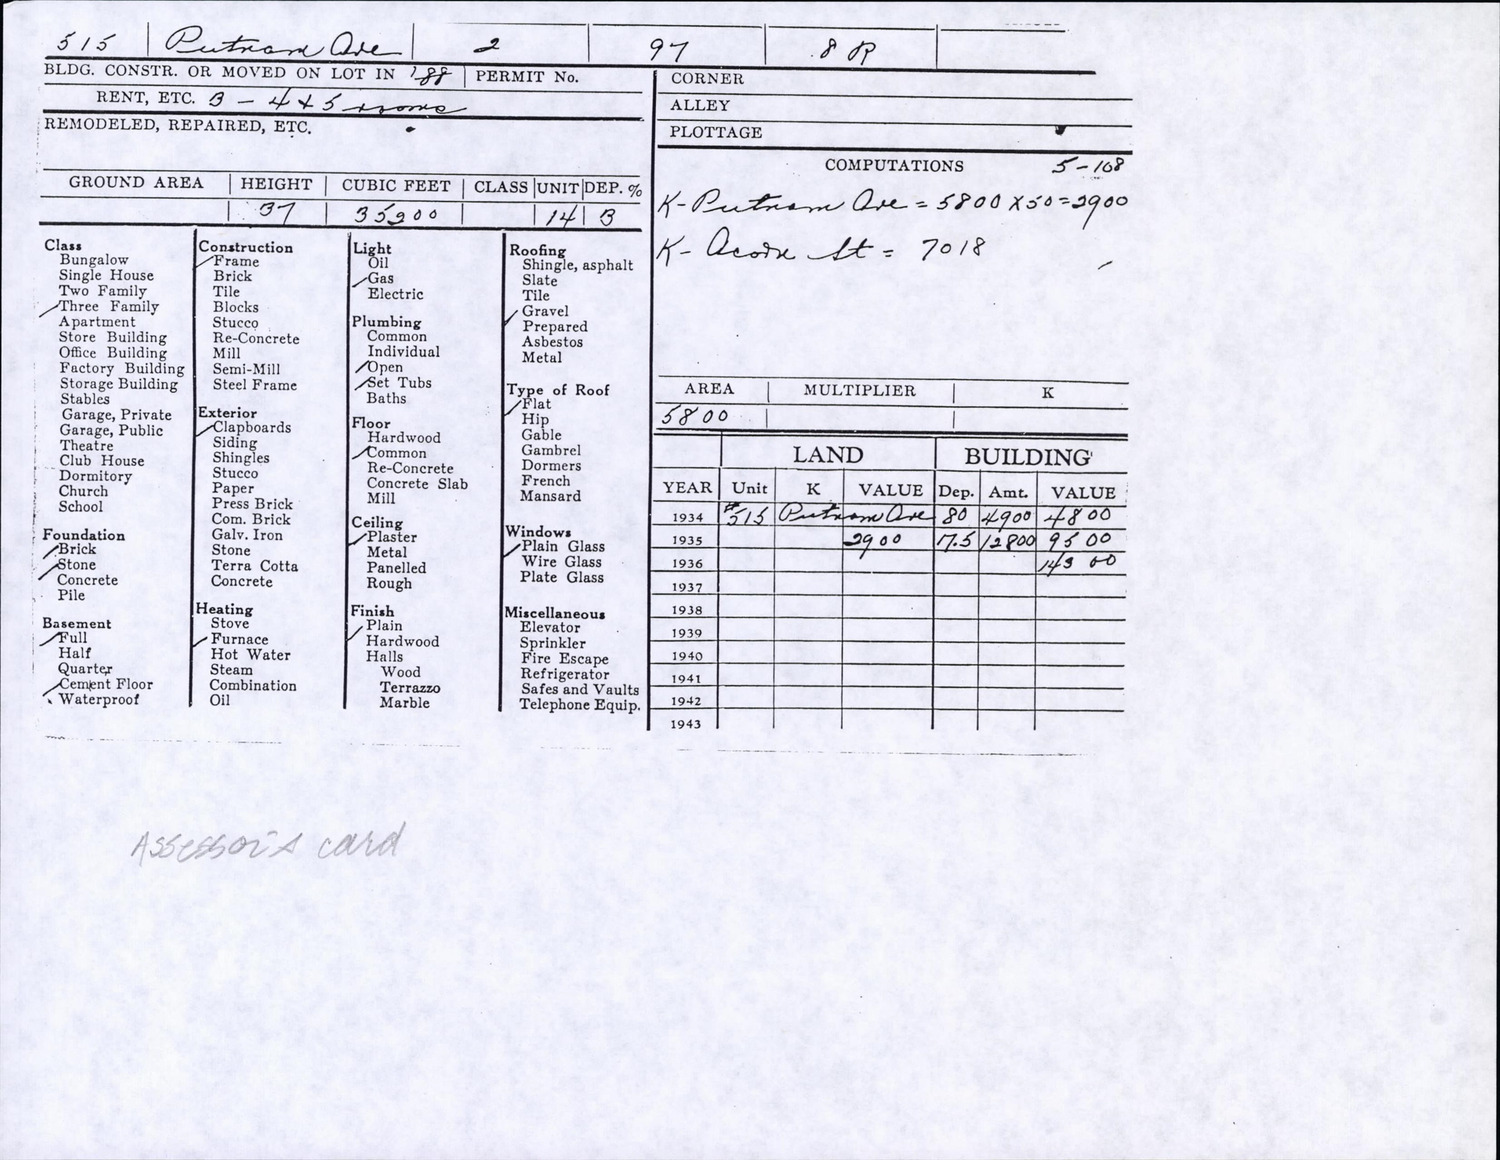 515 Putnam Ave 2 97 8 R
BLDG. CONSTR. OR MOVED ON LOT IN '88 PERMIT No.
RENT, ETC. 3 - 4 + 5 rooms
REMODELED, REPAIRED, ETC.
GROUND AREA HEIGHT CUBIC FEET CLASS UNIT DEP. %
37 35200 14 B
Class
Bungalow
Single House
Two Family
Three Family
Apartment
Store Building
Office Building
Factory Building
Storage Building
Stables
Garage, Private
Garage, Public
Theatre
Club House
Dormitory
Church
School
Foundation
Brick
Stone
Concrete
Pile
Basement
Full
Half
Quarter
Cement Floor
Waterproof
Construction
Frame
Brick
Tile
Blocks
Stucco
Re-Concrete
Mill
Semi-Mill
Steel Frame
Exterior
Clapboards
Siding
Shingles
Stucco
Paper
Press Brick
Com. Brick
Galv. Iron
Stone
Terra Cotta
Concrete
Heating
Stove
Furnace
Hot Water
Steam
Combination
Oil
Light
Oil
Gas
Electric
Plumbing
Common
Individual
Open
Set Tubs
Baths
Floor
Hardwood
Common
Re-Concrete
Concrete Slab
Mill
Ceiling
Plaster
Metal
Panelled
Rough
Finish
Plain
Hardwood
Halls
Wood
Terrazzo
Marble
Roofing
Shingle, asphalt
Slate
Tile
Gravel
Prepared
Asbestos
Metal
Type of Roof
Flat
Hip
Gable
Gambrel
Dormers
French
Mansard
Windows
Plain Glass
Wire Glass
Plate Glass
Miscellaneous
Elevator
Sprinkler
Fire Escape
Refrigerator
Safes and Vaults
Telephone Equip.
CORNER
ALLEY
PLOTTAGE
COMPUTATIONS 5-108
K- Putnam Ave = 5800 X 50 = 2900
K- Acorn St = 7018
AREA MULTIPLIER K
5800
LAND BUILDING
YEAR Unit K VALUE Dep. Amt. VALUE
1934 #515 Putnam Ave 80 4900 4800
1935 2900 17.5 12800 9500
1936 14300
1937
1938
1939
1940
1941
1942
1943
Assessor's card